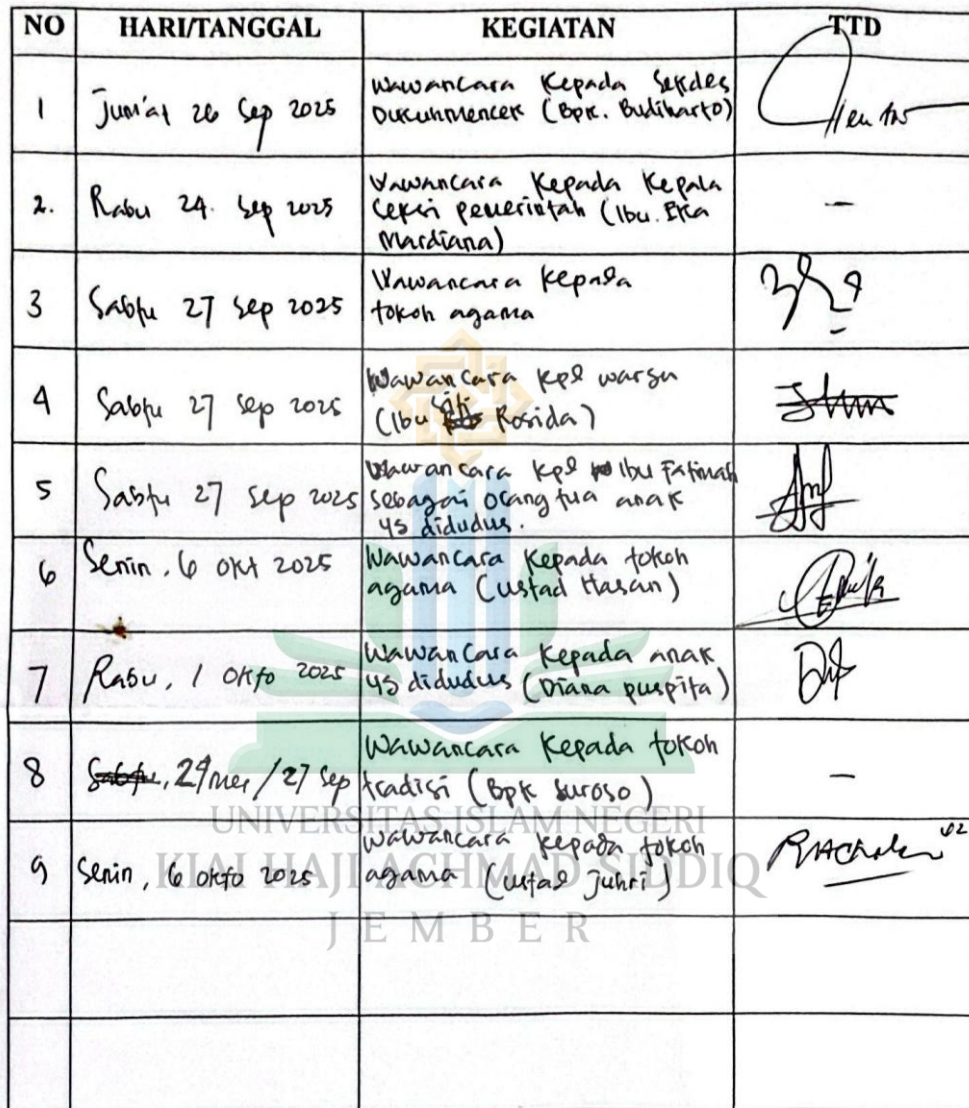 NO HARI/TANGGAL KEGIATAN TTD
1 Jum'at 26 Sep 2025 Wawancara Kepada Sekdes
Dukuhmencek (Bpk. Budiharto)
2. Rabu 24. Sep 2025 Wawancara Kepada Kepala
Seksi pemerintah (Ibu. Eka
Mardiana)
–
3 Sabtu 27 Sep 2025 Wawancara Kepada
tokoh agama
4 Sabtu 27 Sep 2025 Wawancara kpd warga
(Ibu Siti Rosida)
5 Sabtu 27 Sep 2025 Wawancara kpd Ibu Fatimah
sebagai orang tua anak
yg didudus.
6 Senin, 6 Okt 2025 Wawancara Kepada tokoh
agama (Ustad Hasan)
7 Rabu, 1 Okto 2025 Wawancara Kepada anak
yg didudus (Diana puspita)
8 Sabtu, 29 mei / 27 Sep Wawancara Kepada tokoh
tradisi (Bpk Suroso)
–
UNIVERSITAS ISLAM NEGERI
9 Senin, 6 Okto 2025 Wawancara Kepada tokoh
agama (ustad Juhri)
KIAI HAJI ACHMAD SIDDIQ
JEMBER